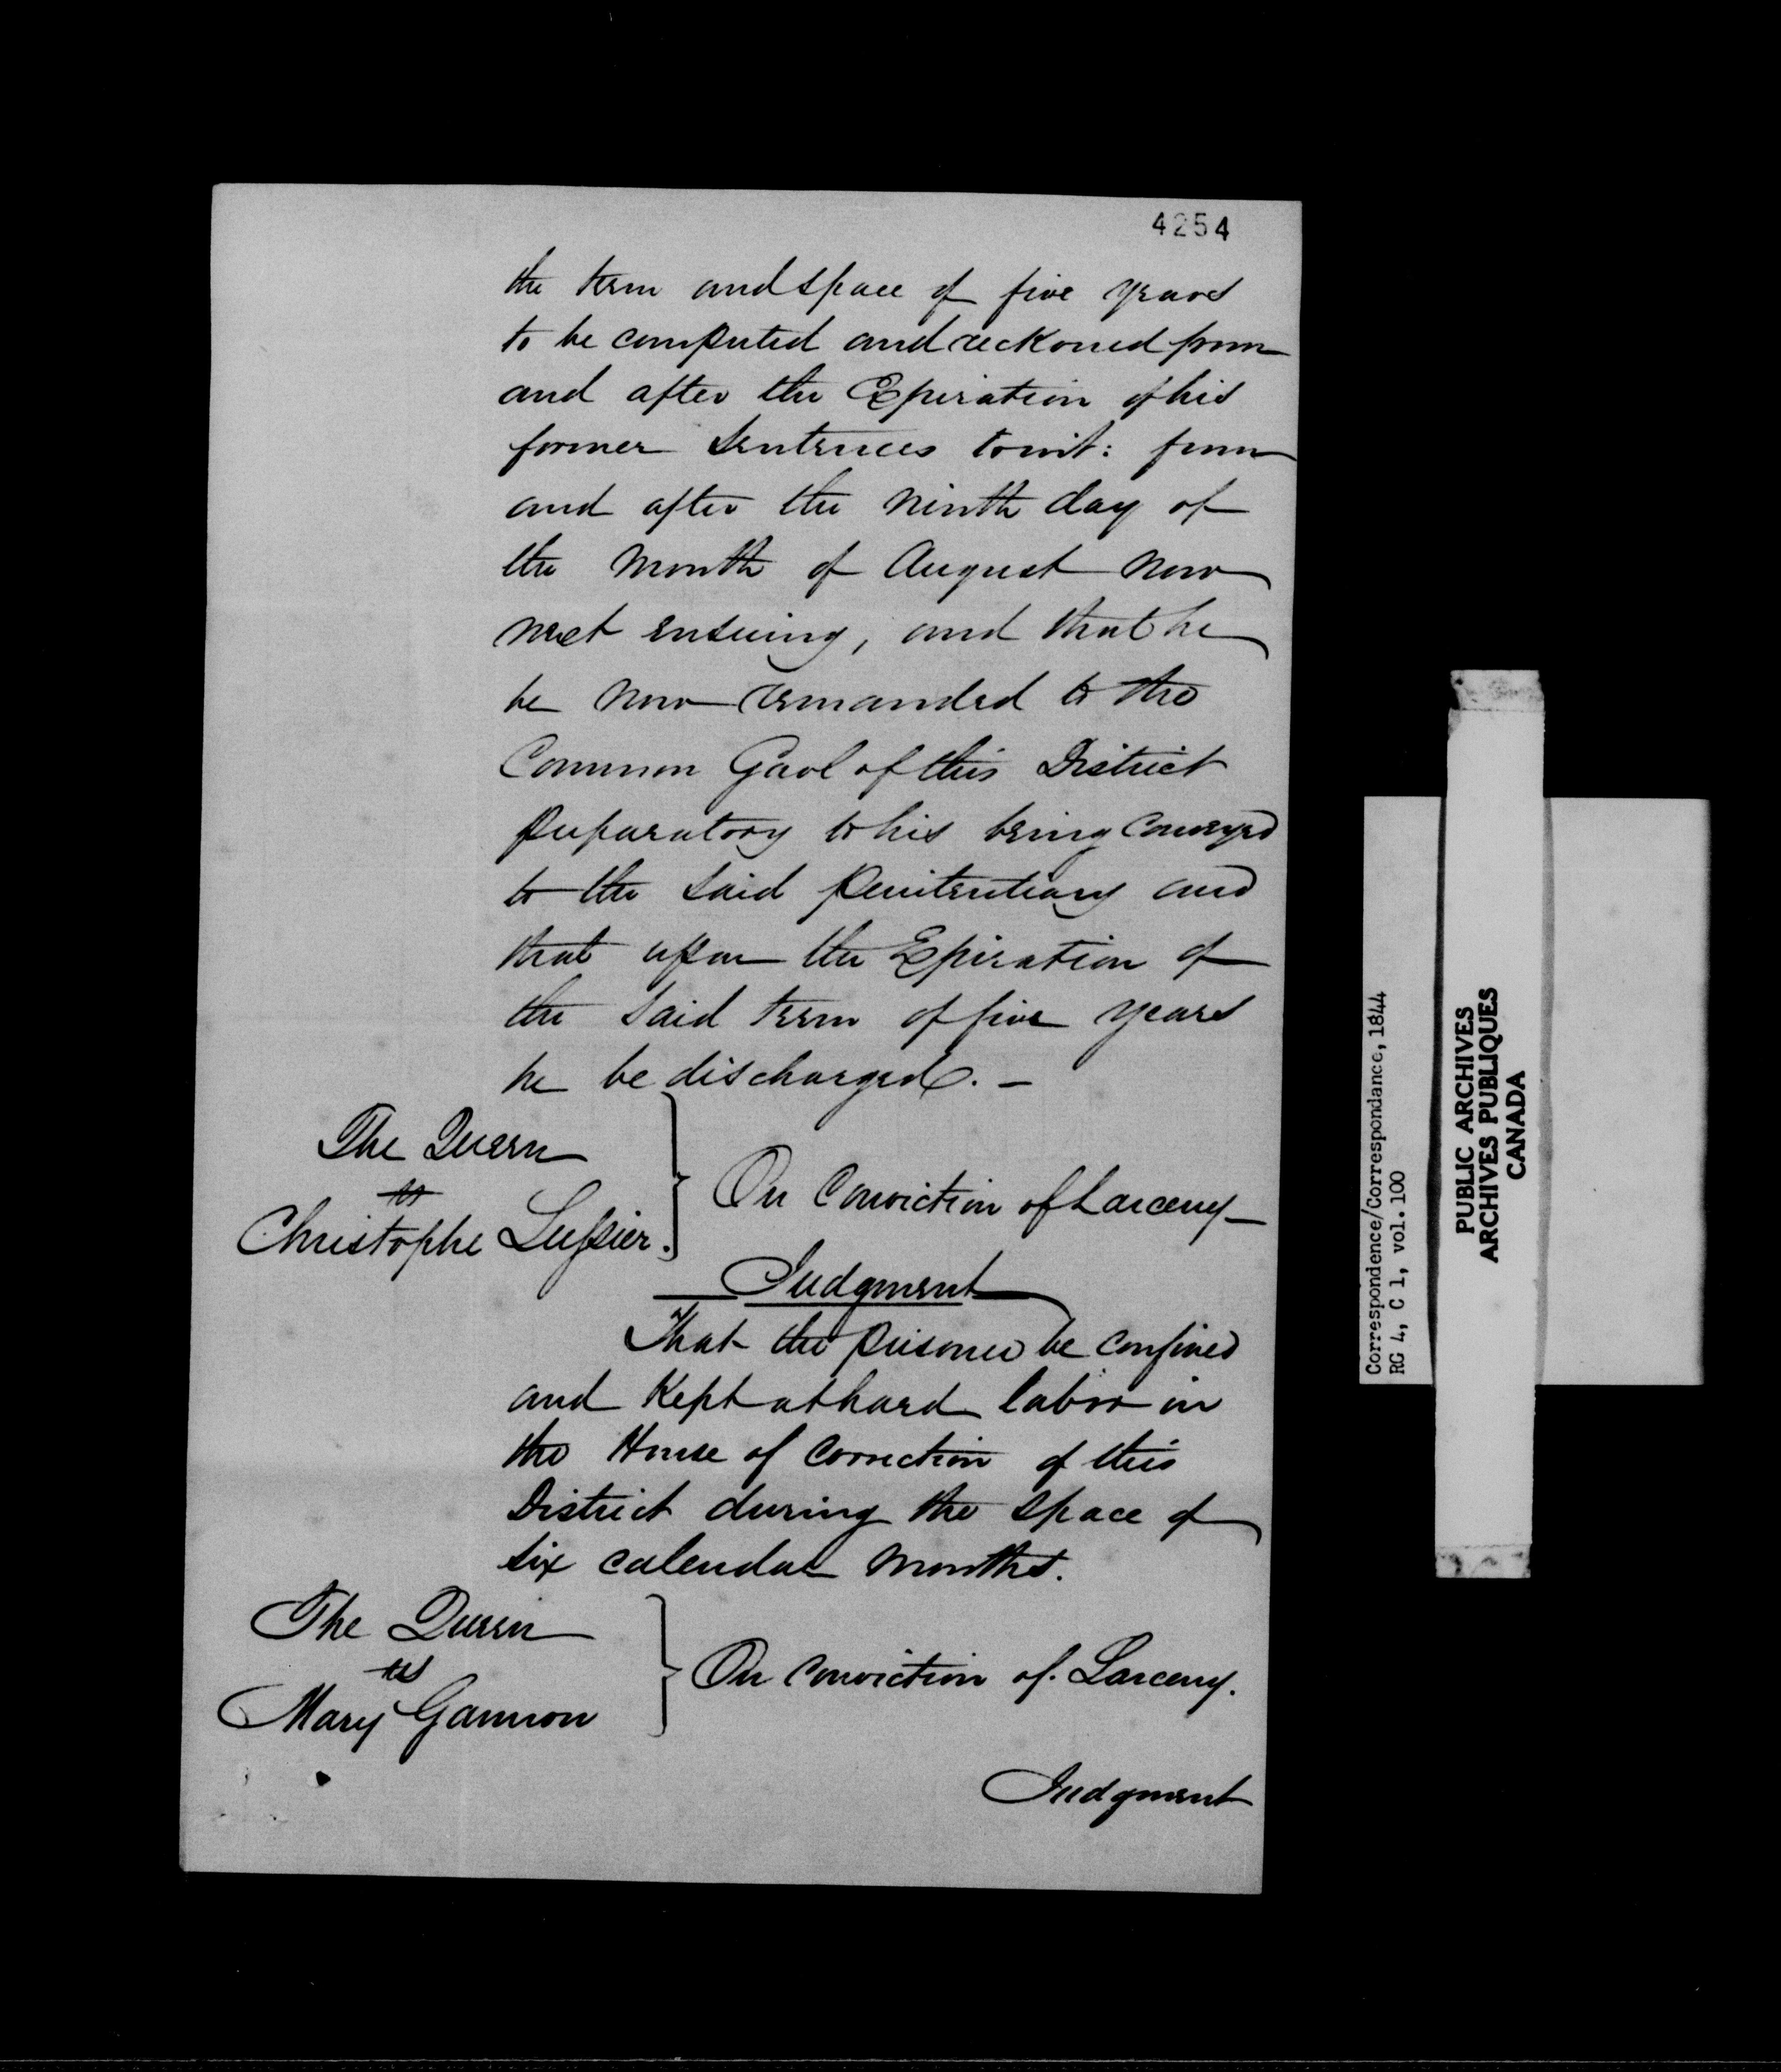 4254
the term and space of five years
to be computed and reckoned from
and after the Expiration of his
former Sentences to wit: from
and after the ninth day of
the month of August now
next ensuing, and that he
be now remanded to the
Common Gaol of this District
preparatory to his being Conveyed
to the said penitentiary and
that upon the Expiration of
the said term of five years
he be discharged. —
The Queen
vs
Christophe Lussier.
On Conviction of Larceny —
Judgment
That the prisoner be confined
and Kept at hard labor in
the House of Correction of this
District during the space of
six calendar months.
The Queen
vs
Mary Gannon
On Conviction of. Larceny.
Judgment
Correspondence/Correspondance, 1844
RG 4, C 1, vol. 100
PUBLIC ARCHIVES
ARCHIVES PUBLIQUES
CANADA